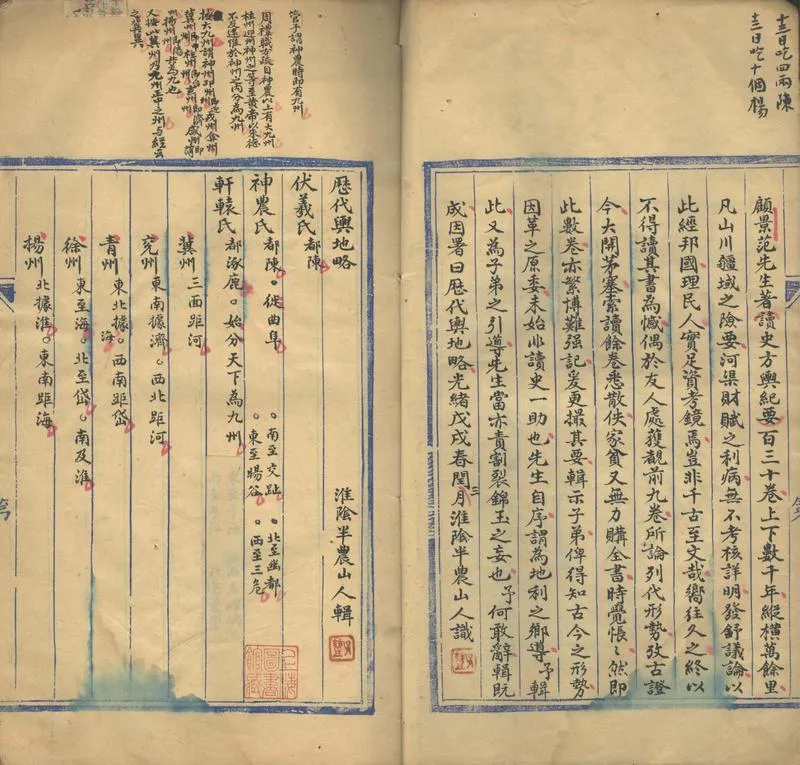 十三日吃四兩陳
十三日吃十個楊
顧景范先生著讀史方輿紀要百三十卷上下數千年縱橫萬餘里
凡山川疆域之險要河渠財賦之利病無不考核詳明發舒議論以
此經邦國理民人實足資考鏡焉豈非千古至文哉嚮往久之終以
不得讀其書為憾偶於友人處獲觀前九卷所論列代形勢攷古證
今大開茅塞索讀餘卷悉散佚家貧又無力購全書時覺悵〻然即
此數卷亦繁博難强記爰更撮其要輯示子弟俾得知古今之形勢
因革之原委未始非讀史一助也先生自序謂為地利之鄉導予輯
此又為子弟之引導先生當亦責割裂錦玉之妄也予何敢辭輯既
成因署曰歷代輿地略光緒戊戌春閏三月淮陰半農山人識
管子謂神農時即有九州
周禮職方疏自神農以上有大九州
桂州迎州神州之等至黃帝以來德
不及遠惟於神州之內分為九州
按大九州謂神州
人每以冀州為九州正中之州与經云
之冀異
淮陰半農山人輯
歷代輿地略
伏羲氏 都陳
神農氏 都陳。徙曲阜 。南至交趾 。北至幽都
。東至暘谷 。西至三危
軒轅氏 都涿鹿。始分天下為九州
冀州 三面距河
兗州 東南據濟。西北距河
青州 東北據海。西南距岱
徐州 東至海。北至岱。南及淮
揚州 北據淮。東南距海
上海圖書館藏